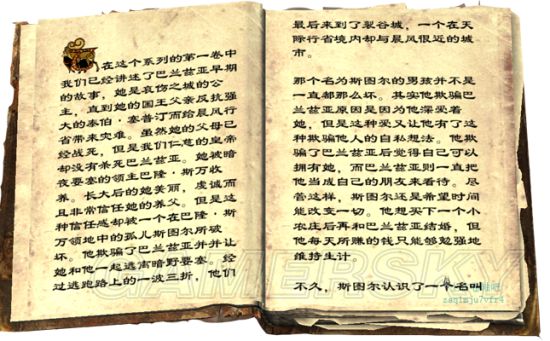 在这个系列的第一卷中
我们已经讲述了巴兰兹亚早期
的故事，她是哀伤之城的公
主，直到她的国王父亲反抗强
大的泰伯·塞普汀而给晨风行
省带来灾难。虽然她的父母已
经战死，但是我们仁慈的皇帝
却没有杀死巴兰兹亚。她被暗
夜要塞的领主巴隆·斯万收
养。长大后的她美丽，虔诚而
且非常信任她的养父。但是这
种信任感却被一个在巴隆·斯
万领地中的孤儿斯图尔所破
坏。他欺骗了巴兰兹亚并并让
她和他一起逃离暗野要塞。经
过逃跑路上的一波三折，他们
最后来到了裂谷城，一个在天
际行省境内却与晨风很近的城
市。
那个名为斯图尔的男孩并不是
一直都那么坏。其实他欺骗巴
兰兹亚原因是因为他深爱着
她，但是这种爱又让他有了这
种欺骗他人的自私想法。他欺
骗了巴兰兹亚后觉得自己可以
拥有她，而巴兰兹亚则一直把
他当成自己的朋友来看待。尽
管这样，斯图尔还是希望时间
能改变一切。他想买下一个小
农庄后再和巴兰兹亚结婚，但
他每天所赚的钱只能够勉强地
维持生计。
不久，斯图尔认识了一个名叫
GAMERSKY
zaqimju7vfr4